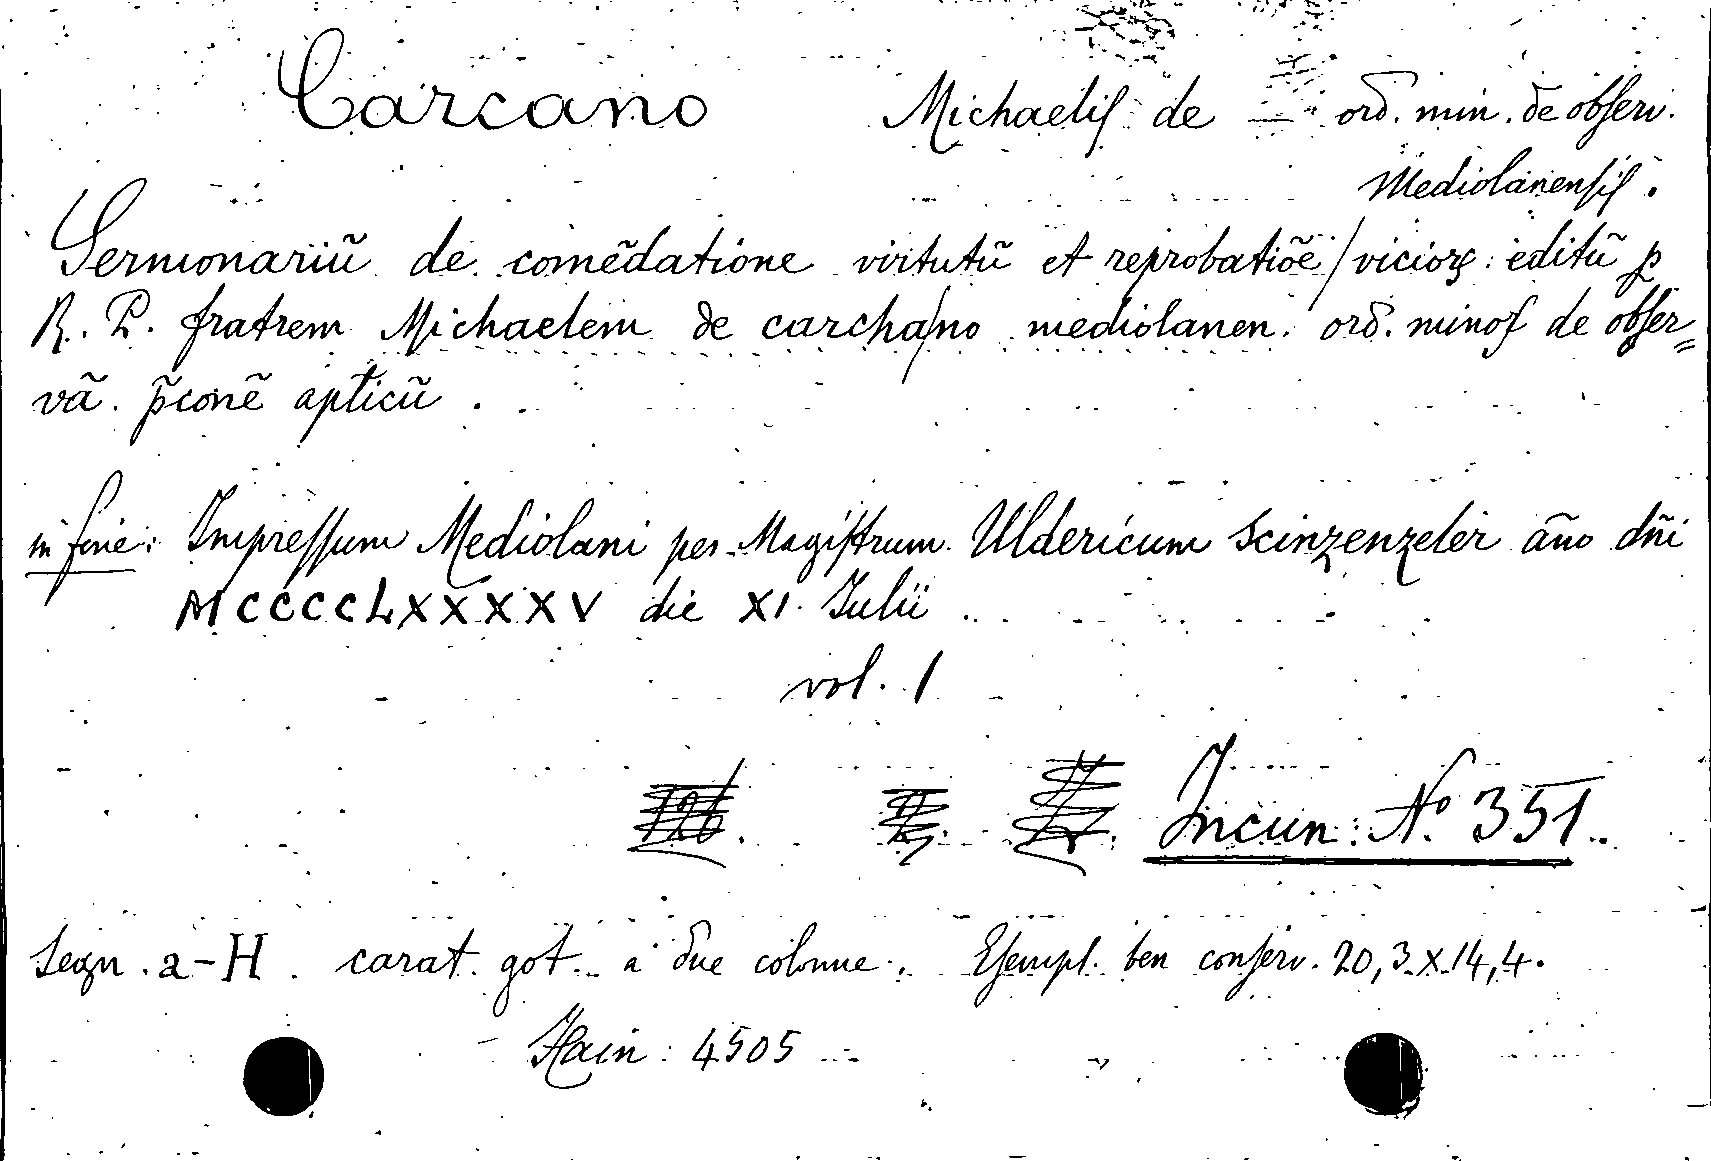 Carcano Michaelis de — ord. min. de observ.
Mediolanensis.
Sermonariũ de comẽdatione virtutũ et reprobatiõe / vicioꝝ: editũ ꝑ
R. P. fratrem Michaelem de carcha/no mediolanen. ord. minoꝝ de obser=
vã. p̃conẽ apticũ.
in fine: Impressum Mediolani per Magistrum Uldericum Scinzenzeler ãno dñi
MCCCCLXXXXV die XI. Iulii
vol. 1
Incun. Nº 351.
Segn. a-H. carat. got. a due colonne. Esempl. ben conserv. 20,3 x 14,4.
Hain: 4505